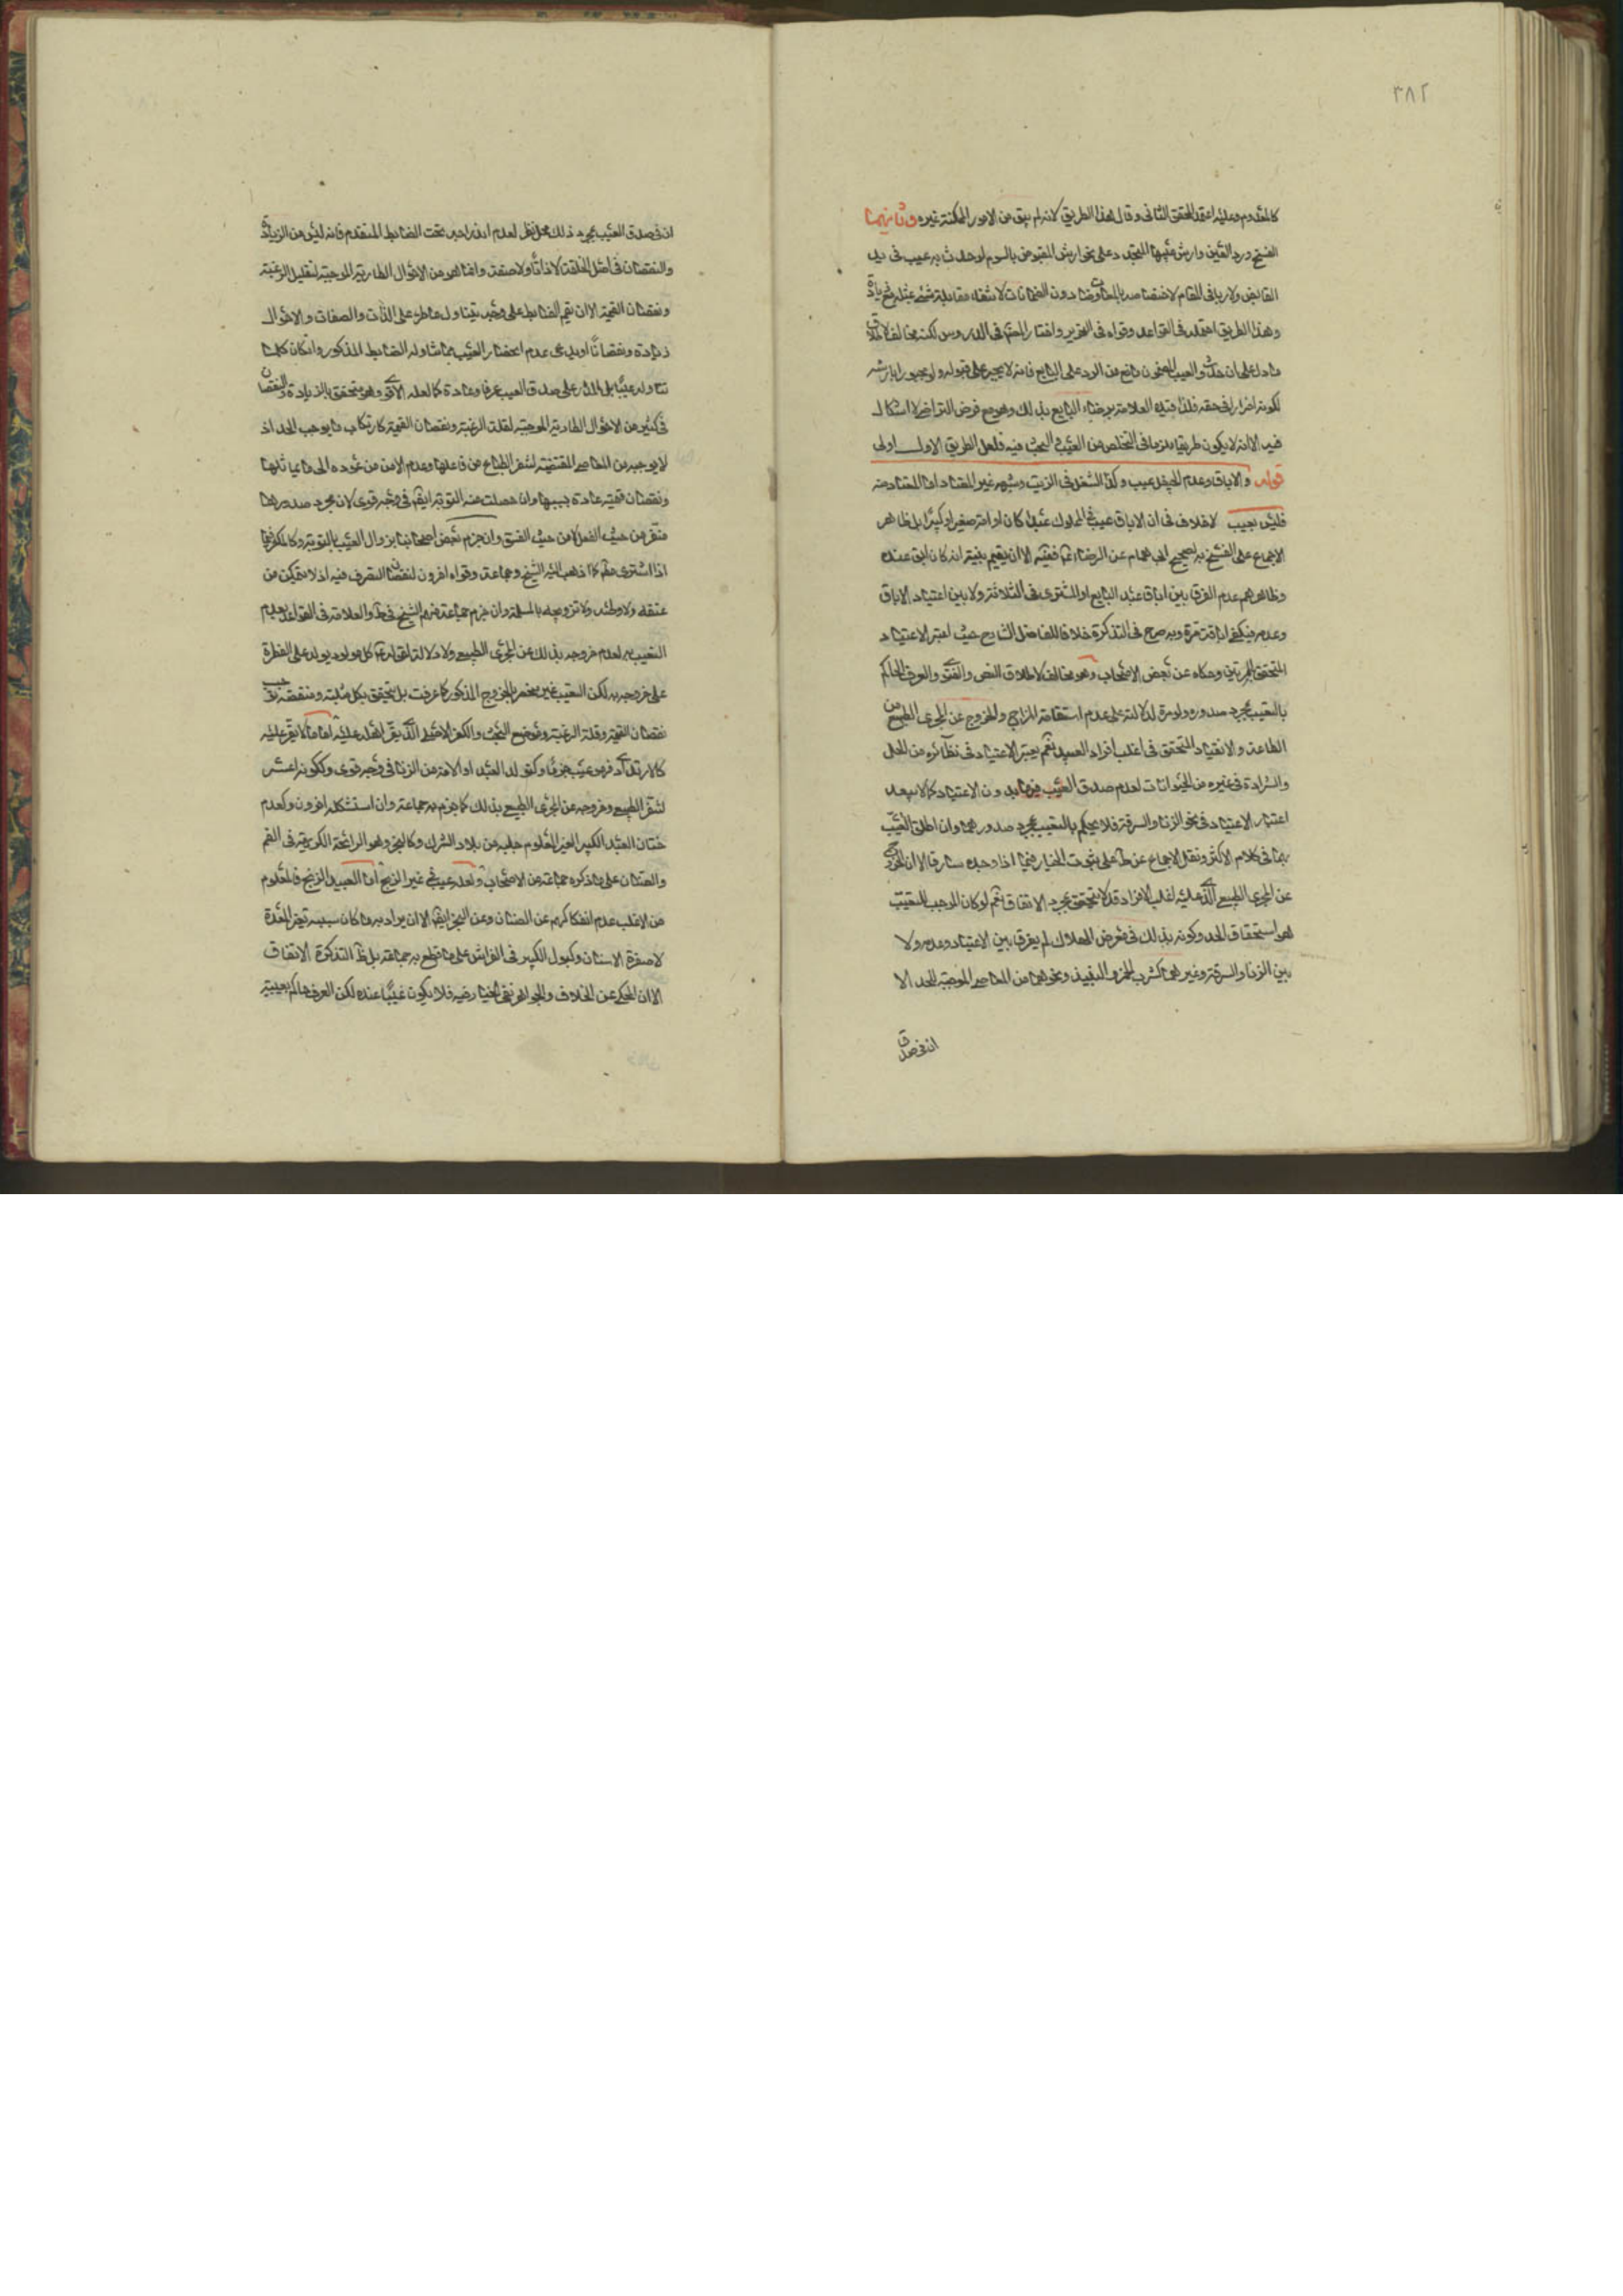 ٣٨٢
كالمعدوم وعليه اعتمد المحقق الثانى وقال هذا الطريق لانه لم يبق من الامور الممكنة غيره وثانيهما
الفسخ ورد العين وارش عيبها المتجدد على نحو ارش المقبوض بالسوم لو حدث به عيب فى يد
القابض ولا ربا فى المقام لاختصاصه بالمعاوضات دون الضمانات لا سيما مقابلة شىء بمثله مع زيادة
وهذا الطريق احتمله فى القواعد وقواه فى التحرير واختاره فى الدروس لكنه مخالف لاطلاق
ما دل على ان حدث العيب المضمون مانع من الرد على البايع فانه لا يجبر على قبوله ولو مجبورا بارشه
لكونه اضرارا فى حقه فلذا قيده العلامة برضاء البايع بذلك وهو مع فرض التراضى لا اشكال
فيه الا انه لا يكون طريقا ملزما فى التخلص من العيب المبحث فيه فلعل الطريق الاول اولى
قوله والاباق وعدم الحيض عيب وكذا الثفل فى الزيت وشبهه غير المعتاد اما المعتاد منه
فليس بعيب لا خلاف فى ان الاباق عيب فى المملوك عبدا كان او امة صغيرا او كبيرا بل ظاهر
الاجماع على الفسخ به لصحيح ابى همام عن الرضاء ففيه الا ان يقيم بينة انه كان ابق عنده
وظاهرهم عدم الفرق بين اباق عند البايع او المشترى فى الثلاثة ولا بين اعتياد الاباق
وعدمه فيكفى اباقه مرة وبه صرح فى التذكرة خلافا للفاضل الشارح حيث اعتبر الاعتياد
المتحقق بمرتين وحكاه عن بعض الاصحاب وهو مخالف لاطلاق النص والفتوى والعرف الحاكم
بالتعيب بمجرد صدوره ولو مرة لدلالته على عدم استقامة المزاج والخروج عن المجرى الطبيعى من
الطاعة والانقياد المتحقق فى اغلب افراد العبيد نعم يعتبر الاعتياد فى نظائره من البخل
والشرادة فى غيره من الحيوانات لعدم صدق العيب فيها بدون الاعتياد كما لا يبعد
اعتبار الاعتياد فى نحو الزنا والسرقة فلا يحكم بالتعيب بمجرد صدورهما وان اطلق العيب
بهما فى كلام الاكثر ونقل الاجماع عن ط على ثبوت الخيار فيما اذا وجده سارقا الا ان الخروج
عن المجرى الطبيعى الذى عليه اغلب الافراد قد لا يتحقق بمجرد الاتفاق نعم لو كان الموجب للتعيب
هو استحقاق الحد وكونه بذلك فى معرض الهلاك لم يفرق بين الاعتياد وعدمه ولا
بين الزنا والسرقة وغيرهما كشرب الخمر والنبيذ ونحوهما من المعاصى الموجبة للحد الا
ان فى صدق
ان فى صدق العيب بمجرد ذلك محل نظر لعدم اندراجه تحت الضابط المتقدم فانه ليس من الزيادة
والنقصان فى اصل الخلقة لا ذاتا ولا صفة وانما هو من الاحوال الطارية الموجبة لتقليل الرغبة
ونقصان القيمة الا ان يعم الضابط على وجه يتناول ما طرء على الذات والصفات والاحوال
زيادة ونقصانا او يدعى عدم انحصار العيب بما شاوله الضابط المذكور وان كان كلما
تناوله عيبا بل المدار على صدق العيب عرفا وعادة كما لعله الاقوى وهو يتحقق بالزيادة والنقصان
فى كثير من الاحوال الطارية الموجبة لقلة الرغبة ونقصان القيمة كارتكاب ما يوجب الحد اذ
لا يوجبه من المعاصى المقتضية لتنفر الطباع من فاعلها وعدم الامن من عوده الى ما يماثلها
ونقصان قيمته عادة بسببها وان حصلت منه التوبة ايضا فى وجه قوى لان مجرد صدورها
منفر من حيث الفعل لا من حيث الفسق وان جزم بعض اصحابنا بزوال العيب بالتوبة وكالكفر فيما
اذا اشترى كما ذهب اليه الشيخ وجماعة وقواه اخرون لنقصان التصرف فيه اذ لا يتمكن من
عتقه ولا وطئه ولا تزويجه بالمسلمة وان جزم جماعة منهم الشيخ فى ط والعلامة فى القواعد بعدم
التعيب به لعدم خروجه بذلك عن المجرى الطبيعى ولا دلالة لقوله كل مولود يولد على الفطرة
على خروجه به لكن التعيب غير منحصر بالخروج المذكور كما عرفت بل يتحقق بكل مثلبة ومنقصة توجب
نقصان القيمة وقلة الرغبة وموضع البحث والكفر الاصلى الذى يقر اهله عليه اما ما لا يقر عليه
كالارتداد فهو عيب جزما وكتولد العبد او الامة من الزنا فى وجه قوى وككونه اعسر
لتنفر الطبيع وخروجه عن المجرى الطبيعى بذلك كما جزم به جماعة وان استشكله اخرون وكعدم
ختان العبد الكبير الغير المعلوم جلبه من بلاد الشرك وكالبخر وهو الرائحة الكريهة فى الفم
والصنان على ما ذكره جماعة من الاصحاب ولعله عيب فى غير الزنج اما العبيد الزنج فالمعلوم
من الاغلب عدم انفكاكهم عن الصنان وعن البخر ايضا الا ان يراد به ما كان سببه تغير المعدة
لا صفرة الاسنان وكبول الكبير فى الفراش على ما قطع به جماعة بل ظ التذكرة الاتفاق
الا ان المحكى عن الخلاف والجواهر نفى الخيار فيه فلا يكون عيبا عنده لكن العرف حاكم بعيبيته